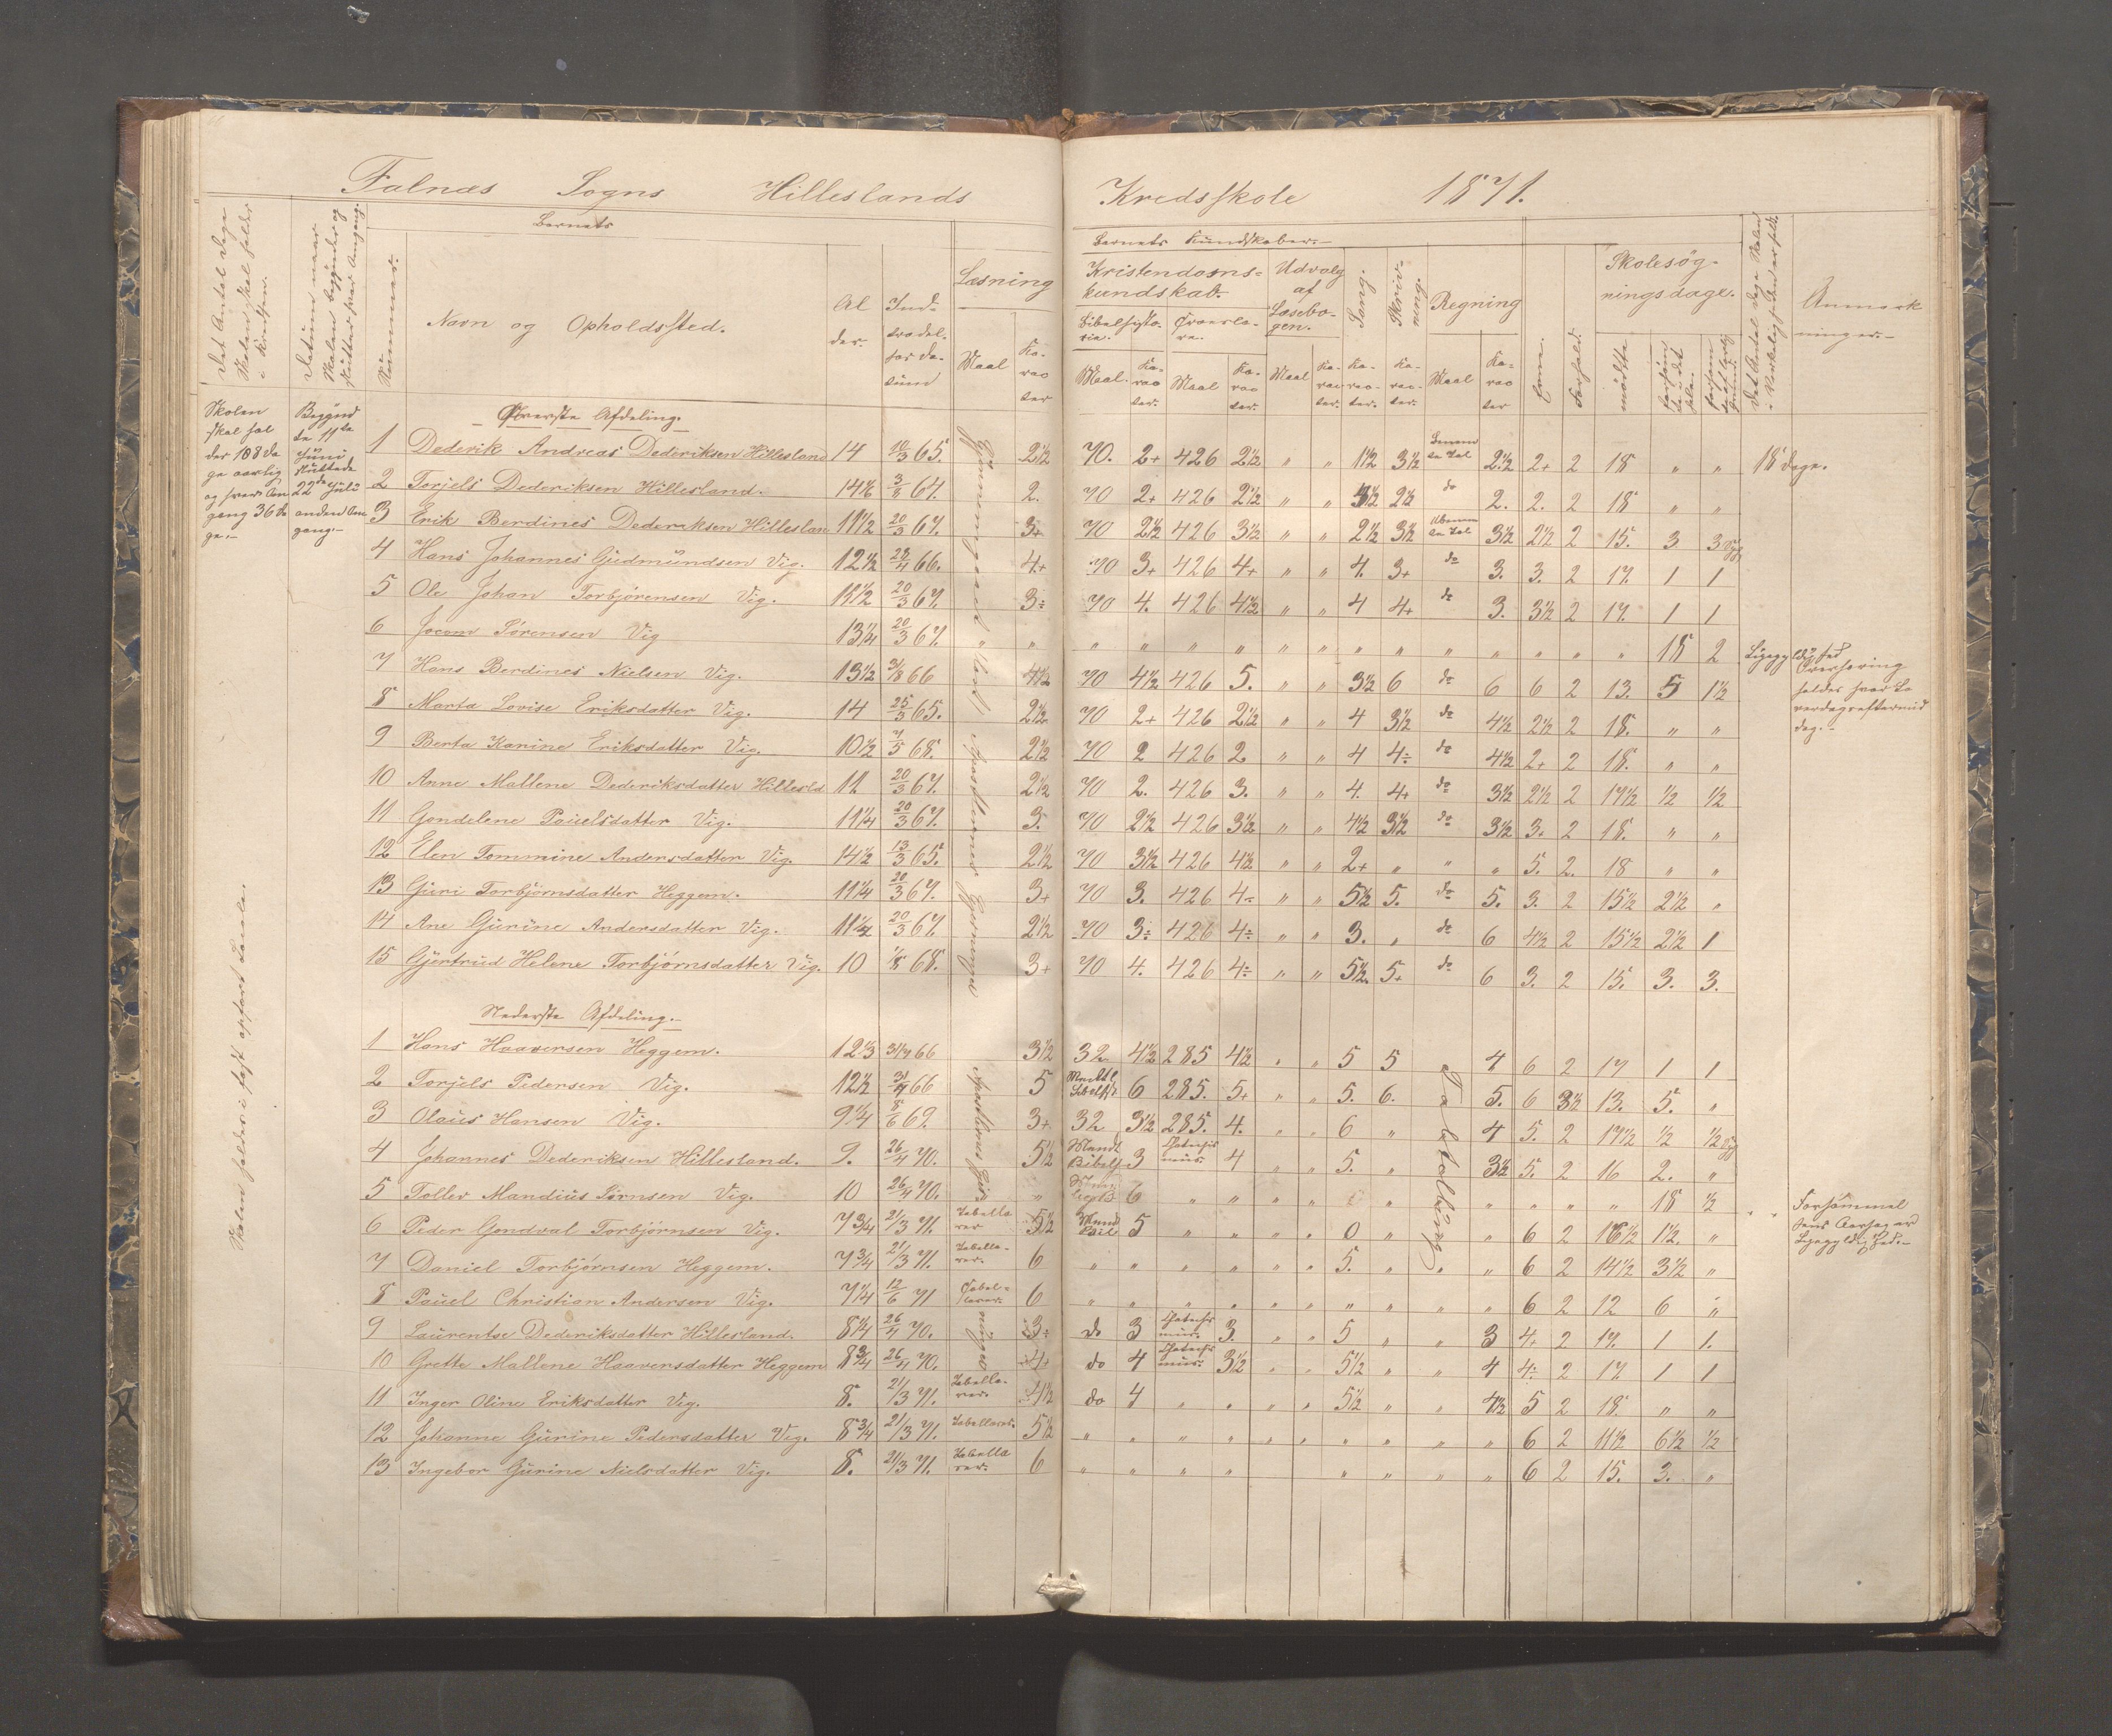 Falnæs Sogns Hilleslands Kredsskole 1871.
Det Antal Dage Skolen skal holdes i Kredsen.
Datum naar Skolen begynder og slutter hver Omgang.
Nummer.
Barnets
Navn og Opholdssted.
Alder.
Indtrædelses datum
Læsning
Maal
Karacter
Barnets Kundskaber.
Kristendomskundskab.
Bibelhistorie.
Maal.
Karacter.
Maal
Karacter.
Udvalg af Læsebogen.
Maal
Karacter.
Sang.
Karacter.
Skrivning.
Karacter.
Regning
Maal
Karacter
Evne.
Forhold.
Skolesøgningsdage.
mødte
Anmærkninger.
Skolen skal holdes 108 Dage aarlig og hver Omgang 36 Dage.
Begyndte 11te Juni sluttede 22de Juli anden Omgang.
Øverste Afdeling.
1 Dederik Andreas Dederiksen Hillesland 14 10/3 65. 2½ 70. 2+ 426 2½ „ „ 1½ 3½ 2½ 2+ 2 18 „ „ 18 Dage.
2 Torjels Dederiksen Hillesland. 3/8 64. 2. 70 2+ 426 2½ „ „ 3½ 2½ do 2. 2. 2 18 „ „
3 Erik Berdines Dederiksen Hilleslan 11½ 20/3 67. 3+ 70 2½ 426 3½ „ „ 2½ 3½ 3½ 2½ 2 15. 3 3 Syg
4 Hans Johannes Gudmundsen Vig. 12½ 28/4 66. 4+ 70 3+ 426 4+ „ „ 4. 3+ do 3. 3. 2 17. 1 1
5 Ole Johan Torbjørensen Vig. 11½ 20/3 67. 3÷ 70 4. 426 4½ „ „ 4 4+ do 3. 3½ 2 17. 1 1
6 Jocom Sørensen Vig 13¼ 20/3 67. „ „ „ „ „ „ „ „ „ „ „ „ „ „ 18 2 Ligegyldighed
7 Hans Berdines Nielsen Vig. 13½ 3/8 66 4½ 70 4½ 426 5. „ „ 3½ 6 do 6 6 2 13. 5 1½
Overhøring holdes hver Loverdagseftermiddag.
8 Marta Lovise Eriksdatter Vig. 14 25/3 65. 2½ 70 2+ 426 2½ „ „ 4 3½ do 4½ 2½ 2 18. „ „
9 Berta Karine Eriksdatter Vig. 10½ 7/5 68. 2½ 70 2 426 2. „ „ 4 4÷ do 4½ 2+ 2 18. „ „
10 Anne Mallene Dederiksdatter Hillesld 11. 20/3 67. 2½ 70 2. 426 3. „ „ 4. 4+ do 3½ 2½ 2 17½ ½ ½
11 Gondelene Pauelsdatter Vig. 11¼ 20/3 67. 3. 70 2½ 426 3½ „ „ 4½ 3½ do 3½ 3. 2 18. „ „
12 Elen Tommine Andersdatter Vig. 14½ 13/3 65. 2½ 70 3½ 426 4½ „ „ 2+ „ „ „ 5. 2. 18 „ „
13 Guri Torbjørnsdatter Heggem. 11¼ 20/3 67. 3+ 70 3. 426 4÷ „ „ 5½ 5. do 5. 3. 2 15½ 2½ „
14 Ane Gurine Andersdatter Vig. 11½ 20/3 67. 2½ 70 3÷ 426 4÷ „ „ 3. „ do 6 4½ 2 15½ 2½ 1
15 Gjertrud Helene Torbjørnsdatter Vig. 10 1/8 68. 3+ 70 4. 426 4÷ „ „ 5½. 5+ do 6 3. 2 15. 3. 3.
Nederste Afdeling.
1 Hans Haaversen Heggem. 12⅓ 31/7 66 3½ 32 4½ 285 4½ „ „ 5 5 4 6 2 17 1 1
2 Torjels Pedersen Vig. 12½ 66 5 6 285. 5+ „ „ 5. 6. 5. 6 3½ 13. 5. „
3 Olaus Hansen Vig. 9¼ 8/6 69. 3+ 32 3½ 285. 4. „ „ 6 „ 4 5. 2 17½ ½ ½ Syg
4 Johannes Dederiksen Hillesland. 9. 26/4 70. 5½ Mundt Bibelh 3 4 „ „ 5. „ 3½ 5. 2 16 2. „
5 Tollev Mandius Sørnsen Vig. 10 26/4 70. „ 6 „ „ „ „ „ „ „ „ „ 18 ½
Forsømmelsens Aarsag er Ligegyldighed.
6 Peder Gondval Torbjørnsen Vig. 7¾ 21/3 71. Tabellerer 5½ 5 „ „ „ „ 0 „ „ 6 2 16½ 1½. „
7 Daniel Torbjørnsen Heggem. 7¾ 21/3 71. Tabellerer. 6 „ „ „ „ „ „ 5. „ „ „ 6 2 14½ 3½ „
8 Pauel Christian Andersen Vig. 7¼ 12/6 71 6 „ „ „ „ „ „ „ „ „ „ 6 2 12 6 „
9 Laurentse Dederiksdatter Hillesland. 8¼ 26/4 70. 3÷ do 3 3. „ „ 5 „ „ 3 4+ 2 17. 1 1.
10 Grette Mallene Haaversdatter Heggem 8¾ 26/4 70. 4+ do 4 3½ „ „ 5½ „ „ 4 4÷ 2 17 1 1
11 Inger Oline Eriksdatter Vig. 8. 21/3 71. Tabellerer. 4½ do 4 „ „ „ „ 5½ „ „ 4½ 5 2 18. „ „
12 Johanne Gurine Pedersdatter Vig. 8¾ 21/3 71. Tabellerer. 5½ „ „ „ „ „ „ „ „ „ „ 6 2 11½ 6½ ½
13 Ingebor Gurine Nielsdatter Vig. 8. 21/3 71. Tabellerer. 6 „ „ „ „ „ „ „ „ 6 2 15. 3. „
Tabelræning
Skolen holdes i fast opført Locale.